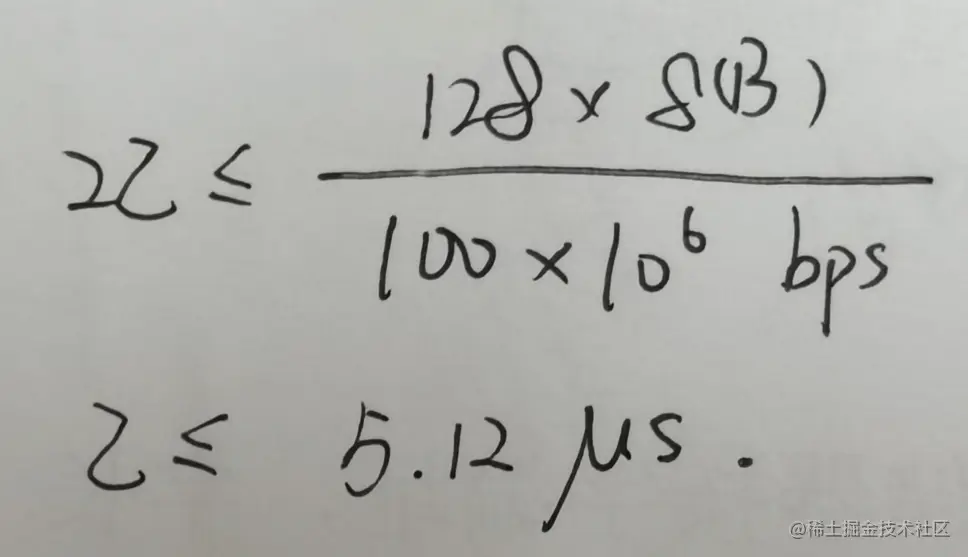 128 × 8(B)
2τ ≤
100 × 10⁶ bps
τ ≤ 5.12 μs.
@稀土掘金技术社区